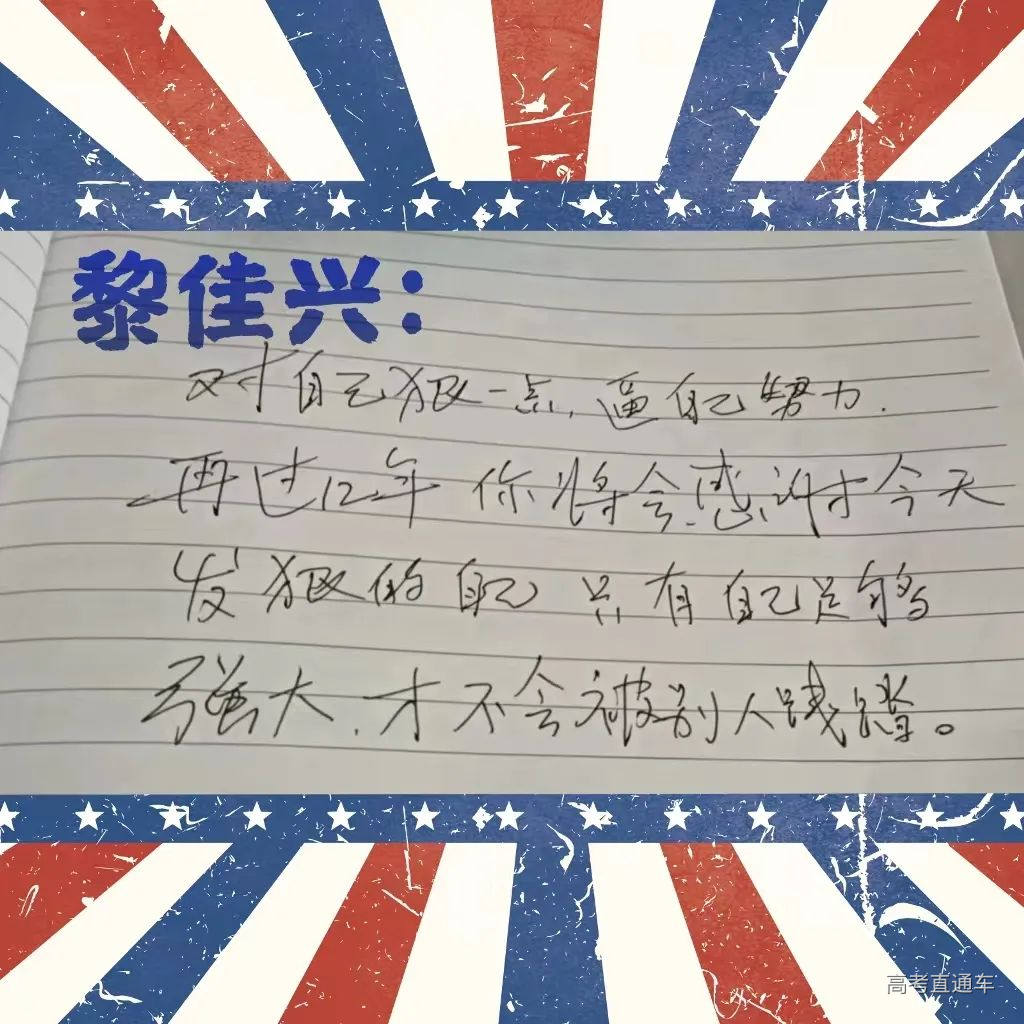 黎佳兴:
对自己狠一点,逼自己努力.
再过12年 你将会感谢今天
发狠的自己 只有自己足够
强大.才不会被别人践踏。
高考直通车